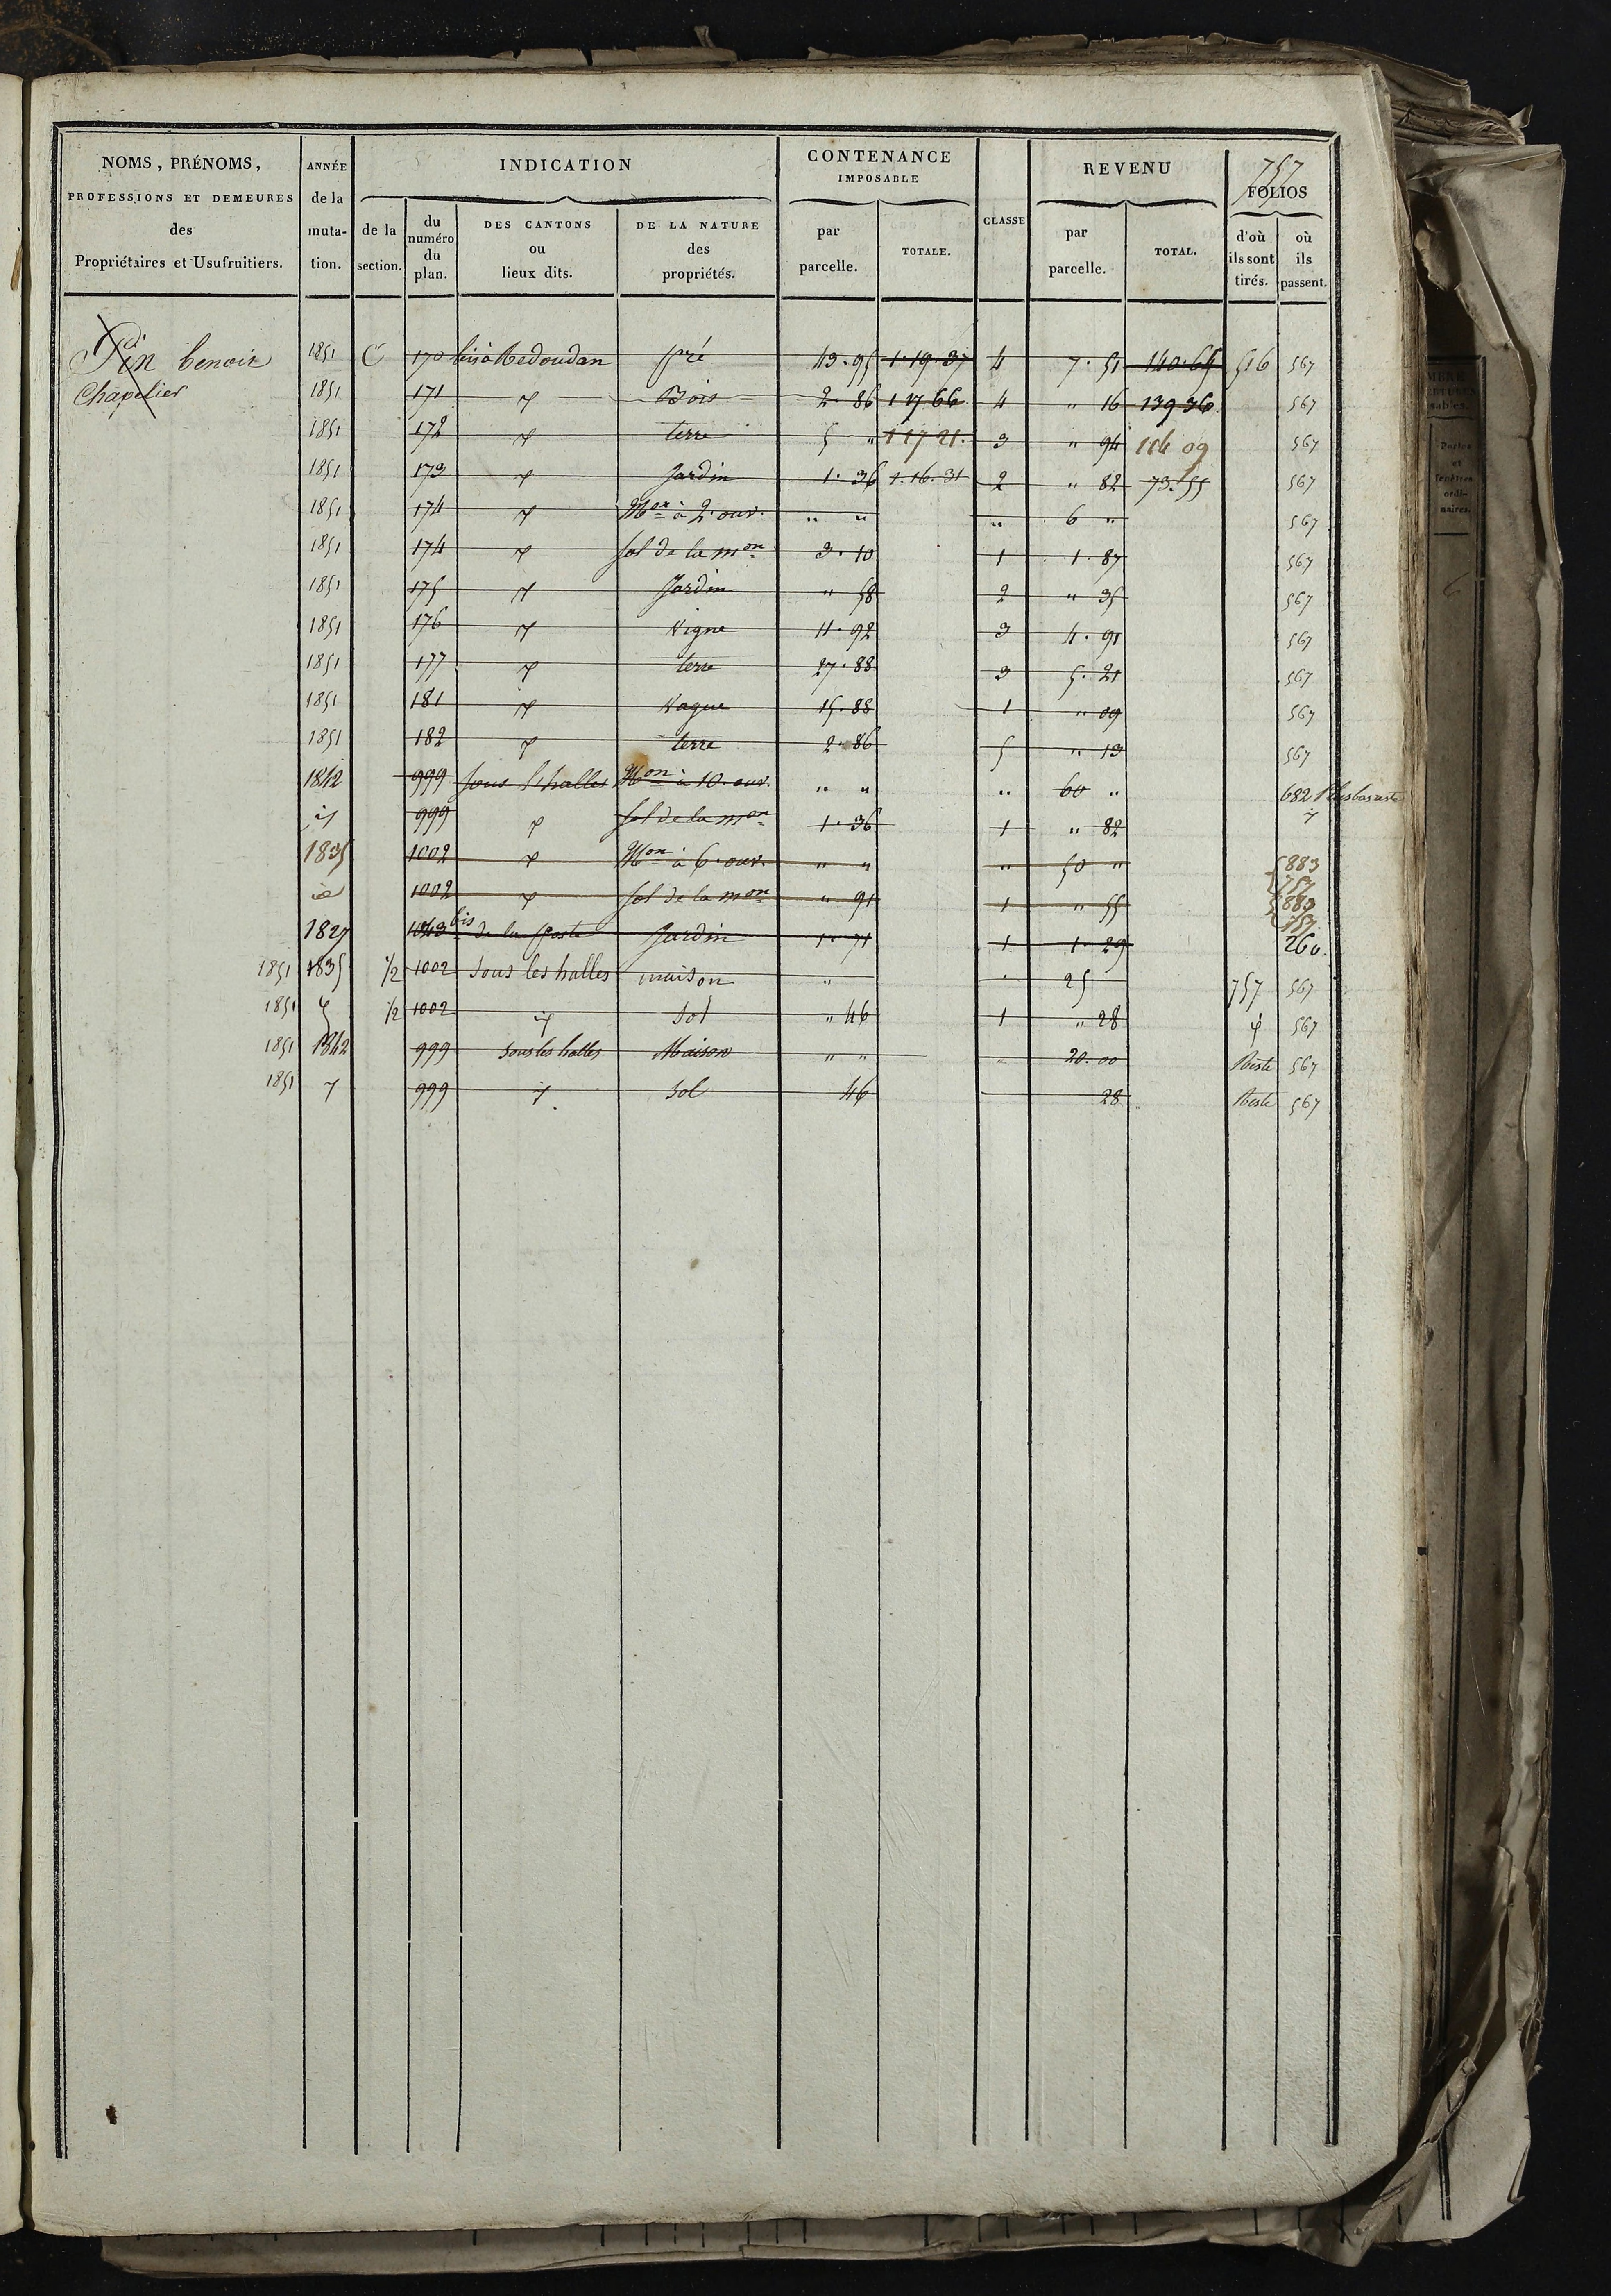 757
NOMS, PRÉNOMS, PROFESSIONS ET DEMEURES des Propriétaires et Usufruitiers.
ANNÉE de la muta-tion.
INDICATION
de la section.
du numéro du plan.
DES CANTONS ou lieux dits.
DE LA NATURE des propriétés.
CONTENANCE IMPOSABLE
par parcelle.
TOTALE.
CLASSE
REVENU
par parcelle.
TOTAL.
FOLIOS
d'où ils sont tirés.
où ils passent.
Pin benoit 1851 C 170 pré 43.95 1.19.37 4 7.51 140.65 516 567
Chapelier 1851 171 Bois 2.86 1 17 66 4 " 16 139 36 567
1851 172 terre 5 " 1 17 21. 3 " 94 114 09 567
1851 173 Jardin 1.36 1.16.31 2 " 82 73.55 567
1851 174 Mon à 2. ouv. " " " 6 " 567
1851 174 sol de la mon 3.10 1 1.87 567
1851 175 Jardin " 58 2 " 35 567
1851 176 Vigne 11.92 3 4.91 567
1851 177 terre 27.88 3 5.21 567
1851 181 Vague 15.88 1 " 09 567
1851 182 terre 2.86 5 " 13 567
1842 999 sous les halles Mon à 10. ouv. " " " 60 " 682
999 sol de la mon 1.36 1 " 82
1835 1002 Mon à 6. ouv. " " " 50 " 883 757
1002 sol de la mon " 91 1 " 55 883 757
1827 1043 bis de la Poste Jardin 1.71 1 1.29 260.
1851 1835 1/2 1002 Sous les halles maison " 25 757 567
1851 1/2 1002 Sol " 46 1 " 28 567
1851 1842 999 Sous les halles Maison " " 20.00 Reste 567
1851 999 Sol 46 28 Reste 567